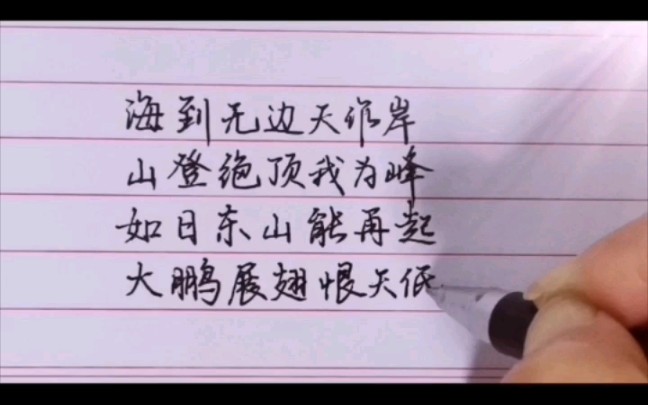 海到无边天作岸
山登绝顶我为峰
如日东山能再起
大鹏展翅恨天低